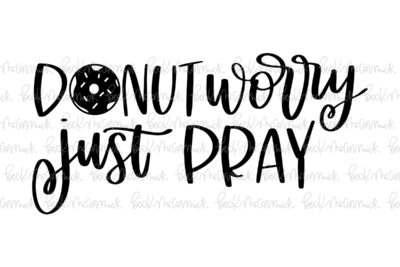 DONUT worry
just PRAY